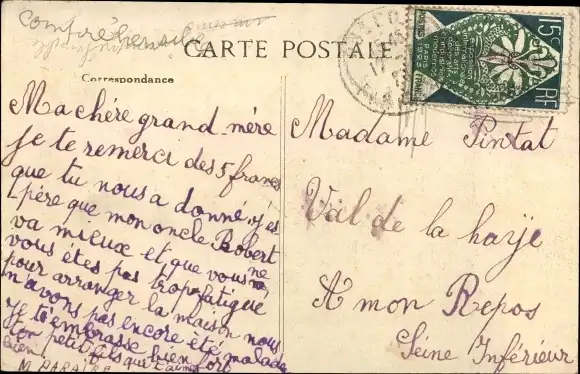 compréhensible
CARTE POSTALE
Correspondance
Ma chére grand-mére
je te remerci des 5 francs
que tu nous a donné. j'es
-pére que mon oncle Robert
va mieux et que vous ne
vous étes pas trop fatigué
pour arranger la maison nous
n'avons pas encore été malade
Je t'embrasse bien fort
ton petit fils qui t'aime
bien
M PARAITRE
15c
RF
POSTES
PARIS 1925
Madame Pintat
Val de la haye
A mon Repos
Seine Inférieur